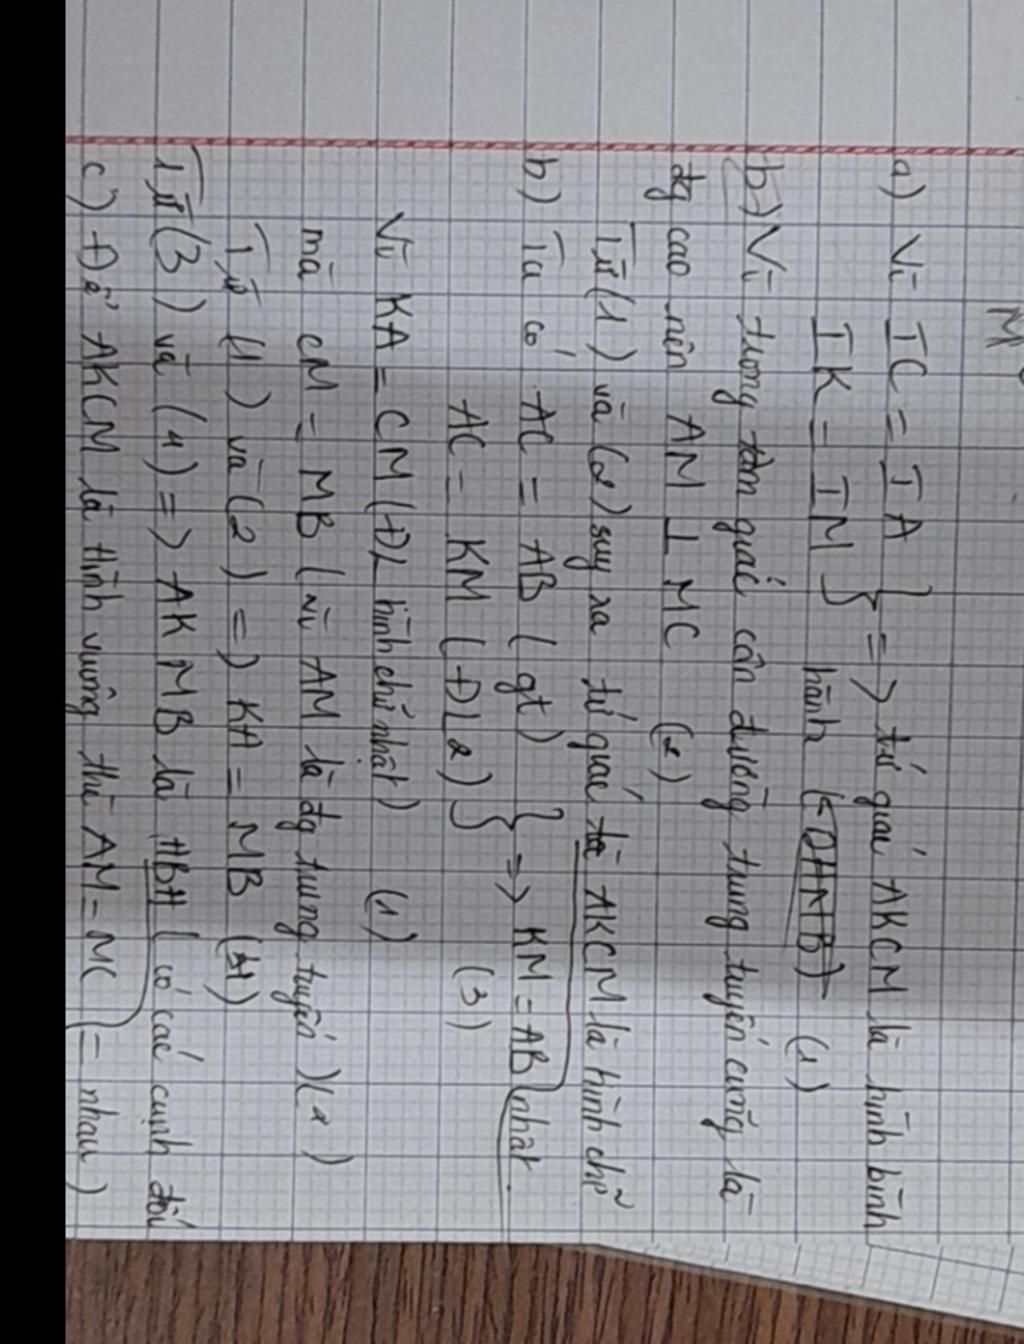 M
a) Vì IC = IA } => tứ giác AKCM là hình bình
IK = IM } hành (DHNB) (1)
b) Vì trong tam giác cân đường trung tuyến cũng là
đg cao nên AM ⊥ MC (2)
Từ (1) và (2) suy ra tứ giác AKCM là hình chữ
nhật.
b) Ta có AC = AB (gt) } => KM = AB
AC = KM (ĐL2) } (3)
Vì KA = CM (ĐL hình chữ nhật) (1)
mà CM = MB (vì AM là đg trung tuyến) (2)
Từ (1) và (2) => KA = MB (4)
Từ (3) và (4) => AKMB là HBH (có các cạnh đối
= nhau)
c) Để AKCM là hình vuông thì AM = MC